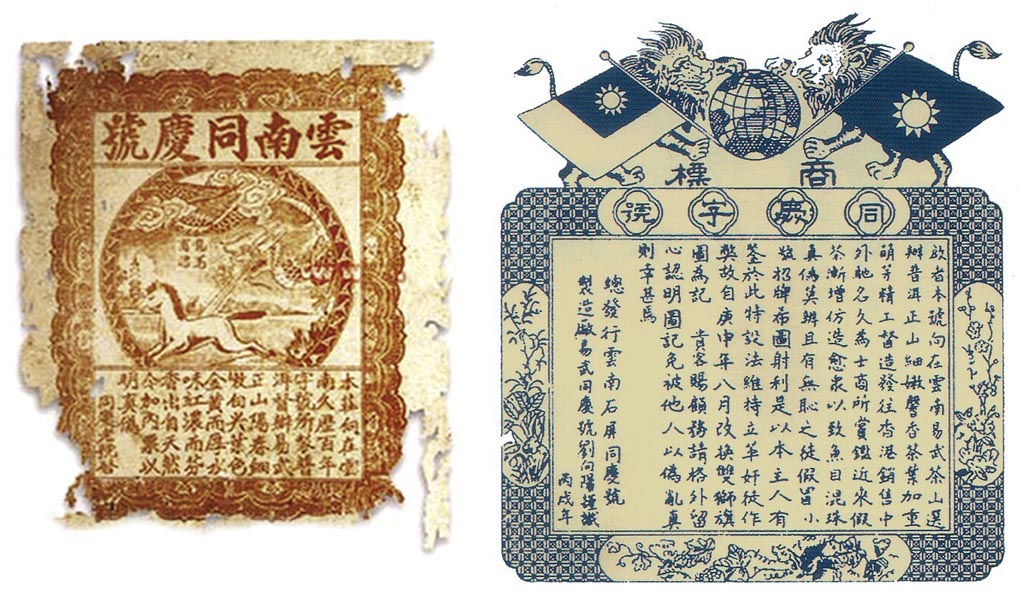 雲南同慶號
本莊向在雲
南久歷百年
字號所製普
洱督辦易武
正山陽春細
嫩白尖葉色
金黃而厚水
味紅濃而芬
香出自天然
今加內票以
明真偽
商標
同慶字號
啟者本號向在雲南易武茶山選
辦普洱正山細嫩馨香茶葉加重
萌芽精工督造發往香港銷售中
外馳名久為士商所賞鑑近來假
茶漸增仿造愈衆以致魚目混珠
真偽莫辨且有無恥之徒假冒小
號招牌布圖射利是以本主人有
鑒於此特設法維持立革奸徒作
弊故自庚申年八月改換雙獅旗
圖為記 貴客賜顧務請格外留
心認明圖記免被他人以偽亂真
則幸甚焉
總發行雲南石屏同慶號
製造廠易武同慶號劉向陽謹識
丙戌年